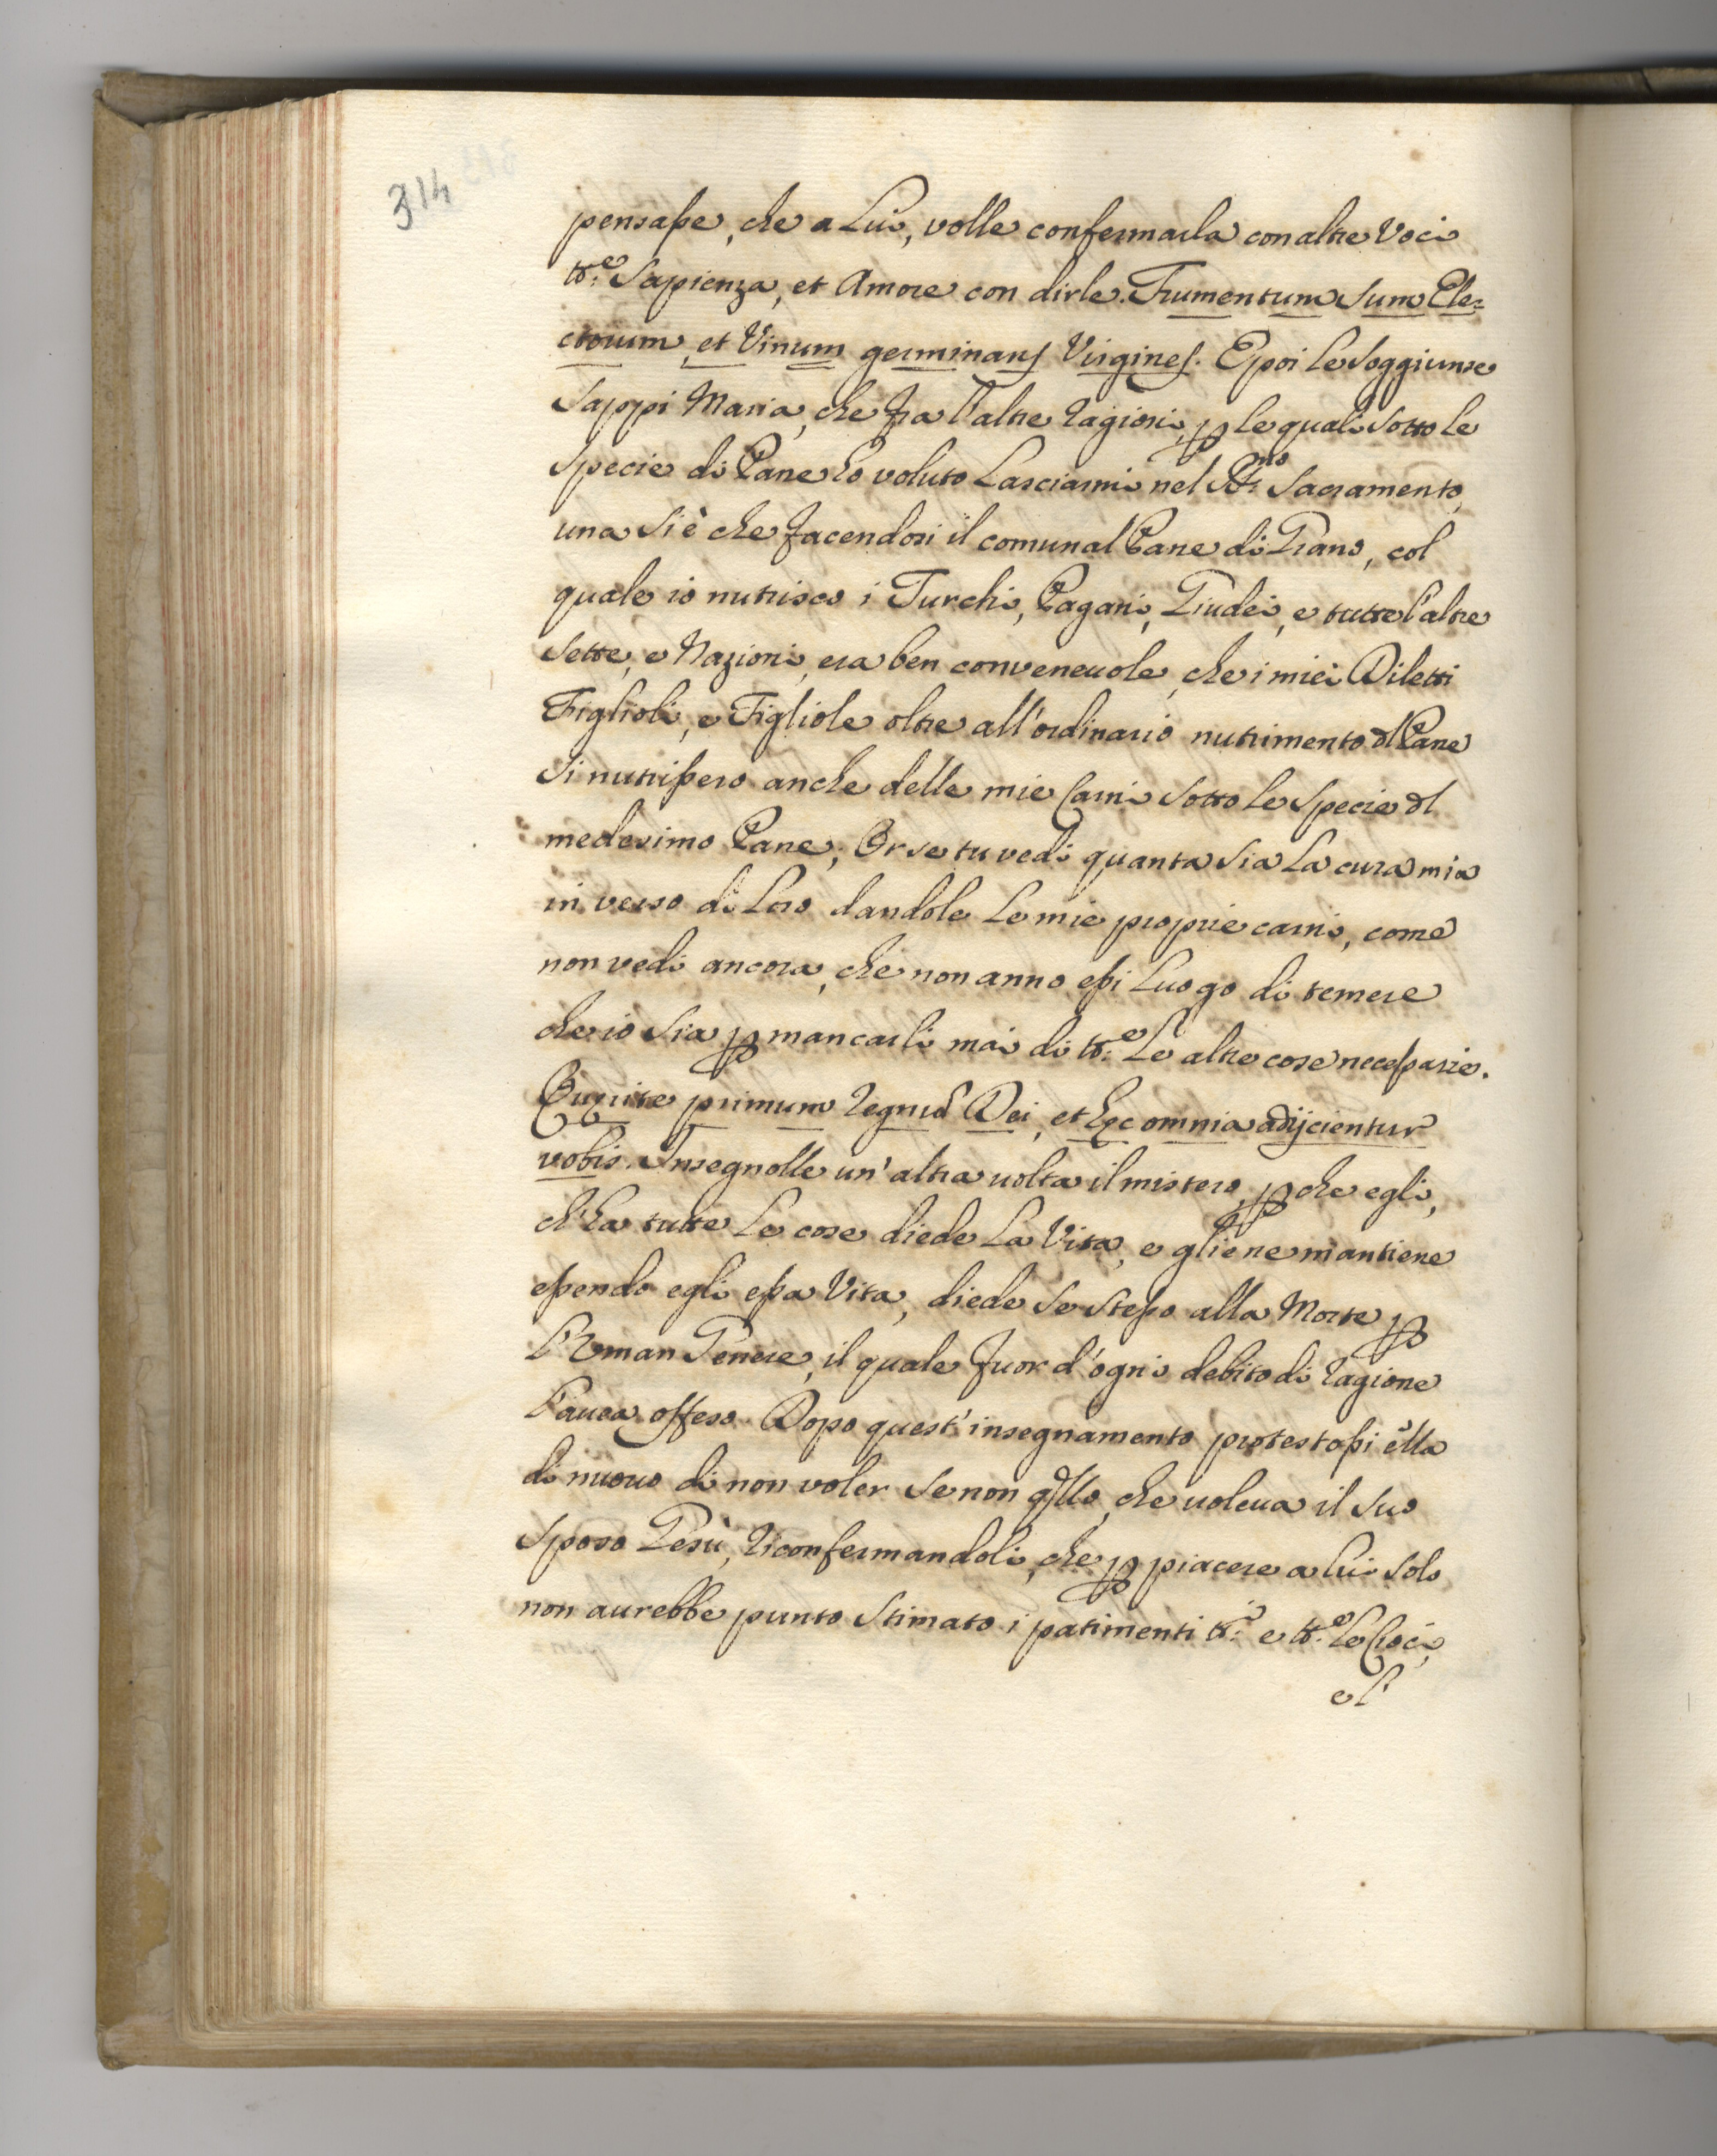 314
pensasse, che a Lui, volle confermarla con altre Voci
tt.e Sapienza, et Amore con dirle. Frumentum sum Ele=
ctorum, et Vinum germinans Virgines. E poi le soggiunse
Sappi Maria, che fra l'altre ragioni, ꝑ le quali sotto le
specie di Pane hò voluto Lasciarmi nel SS.mo Sacramento,
una si è che facendosi il comunal Pane di Grano, col
quale io nutrisco i Turchi, Pagani, Giudei, e tutte l'altre
Sette, e Nazioni, era ben conveneuole, che i miei Diletti
Figlioli, e Figliole oltre all'ordinario nutrimento dl Pane
si nutrissero anche delle mie Carni sotto le specie dl
medesimo Pane; Or se tu vedi quanta sia La cura mia
in verso di Loro dandole Le mie proprie carni, come
non vedi ancora, che non anno essi Luogo di temere
che io sia ꝑ mancarli mai di tt.e Le altre cose necessarie.
Querite primum regnũ Dei, et hęc omnia adijcientur
vobis. Insegnolle un'altra uolta il mistero, ꝑche egli,
ch'ha tutte Le cose diede La Vita, e gliene mantiene
essendo egli essa Vita, diede se stesso alla Morte ꝑ
l'Uman Genere, il quale fuor d'ogni debito di ragione
l'auea offeso. Dopo quest'insegnamento protestossi ella
di nuouo di non voler se non qllo, che uoleua il suo
Sposo Gesù, riconfermandoli, che ꝑ piacere a Lui solo
non aurebbe punto stimato i patimenti tt.i e tt.e le Croci,
e l'